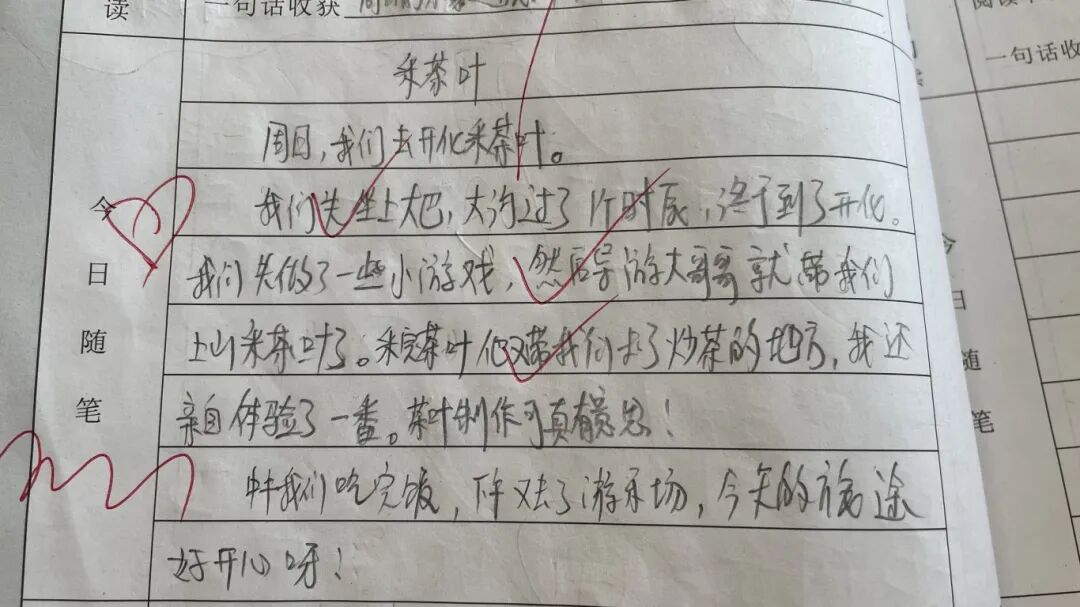 读
一句话收获
采茶叶
周日，我们去开化采茶叶。
我们先坐上大巴，大约过了1个时辰，终于到了开化。
我们先做了一些小游戏，然后导游大哥哥就带我们
上山采茶叶了。采完茶叶他又带我们去了炒茶的地方，我还
亲自体验了一番。茶叶制作可真有意思！
中午我们吃完饭，下午又去了游乐场，今天的旅途
好开心呀！
今
日
随
笔
一句话收
今
日
随
笔